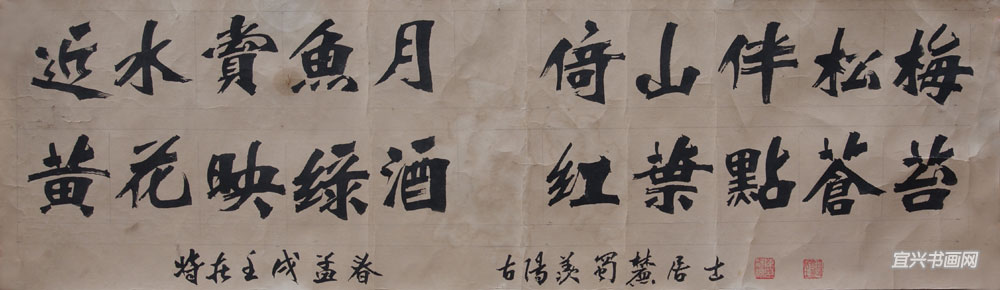 近水賞魚月 倚山伴松梅
黄花映緑酒 红葉點蒼苔
時在壬戌孟春 古陽羨蜀麓居士
宜兴书画网